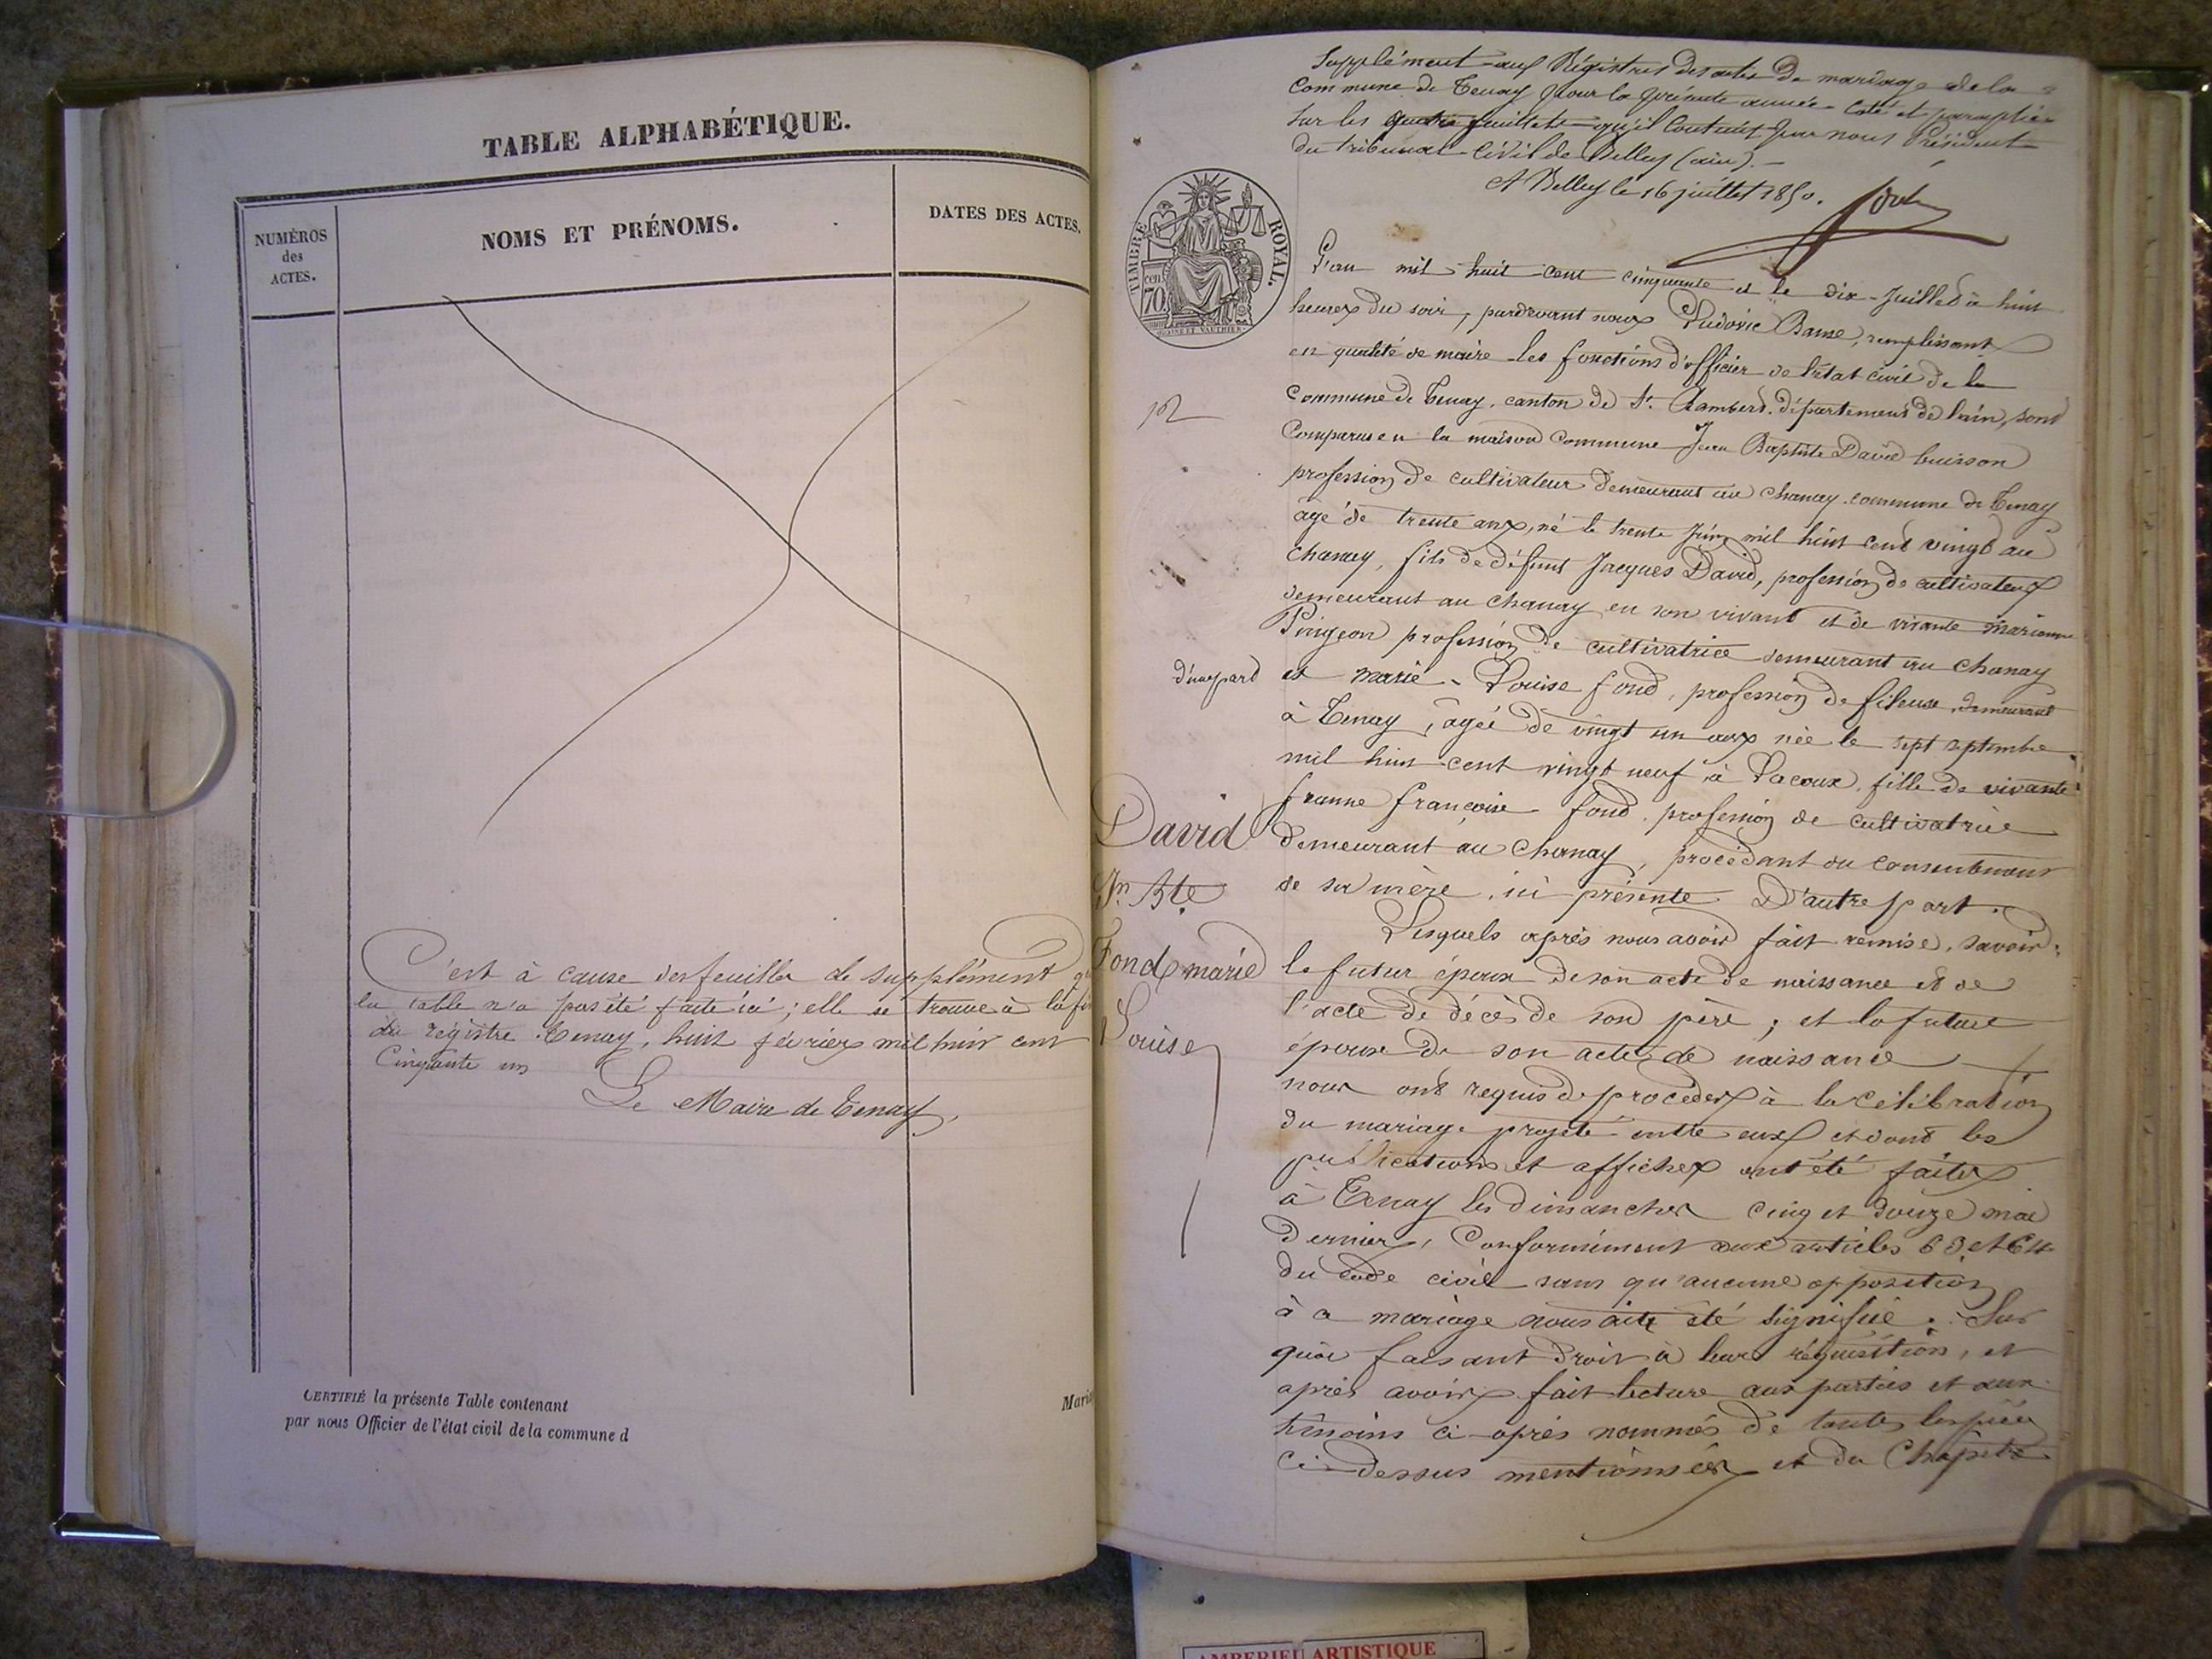 TABLE ALPHABÉTIQUE.
NUMÉROS
des
ACTES.
NOMS ET PRÉNOMS.
DATES DES ACTES.
C'est à cause des feuilles de supplément
la table n'a pas été faite ici ; elle se trouve à la fin
du registre. Tenay, huit février mil huit cent
Cinquante un
Le Maire de Tenay,
CERTIFIÉ la présente Table contenant
par nous Officier de l'état civil de la commune d
Supplément aux Régistres des actes de mariage de la
Commune de Tenay pour la présente année Coté et paraphé
Sur les quatre feuillets qu'il Contient par nous Président
du tribunal Civil de Belley (ain).
A Belley le 16 juillet 1850.
TIMBRE ROYAL.
cen
70
L'an mil huit cent cinquante et le dix-Juillet à huit
heures du soir, pardevant nous Ludovic Banse, remplissant
en qualité de maire les fonctions d'officier de l'état civil de la
Commune de Tenay, canton de St. Rambert, département de l'ain, sont
Comparus en la maison Commune Jean Baptiste David buisson
profession de cultivateur demeurant au Chanay commune de Tenay
agé de trente ans, né le trente Juin mil huit cent vingt au
Chanay, fils de défunt Jacques David, profession de cultivateur
demeurant au Chanay en son vivant et de vivante Marianne
Pingeon profession de cultivatrice demeurant au Chanay
d'une part
et Marie-Louise fond, profession de fileuse, demeurant
à Tenay, agée de vingt un ans née le sept septembre
mil huit cent vingt neuf à Lacoux, fille de vivante
Françoise fond, profession de cultivatrice
demeurant au Chanay, procédant du consentement
de sa mère, ici présente D'autre part.
David
Jn. Bte
Fond marie
Louise
Lesquels après nous avoir fait remise, savoir:
le futur époux de son acte de naissance et de
l'acte de décès de son père ; et la future
épouse de son acte de naissance
nous ont requis de procéder à la célébration
du mariage projeté entre eux et dont les
publications et affiches ont été faites
à Tenay les dimanches cinq et douze mai
dernier, Conformément aux articles 63 et 64
du Code civil sans qu'aucune opposition
à ce mariage nous ait été signifiée. Sur
quoi faisant droit à leur réquisition, et
après avoir fait lecture aux parties et aux
témoins ci-après nommés de toutes les pièces
Ci-dessus mentionnées et du Chapitre
AMBERIEU ARTISTIQUE